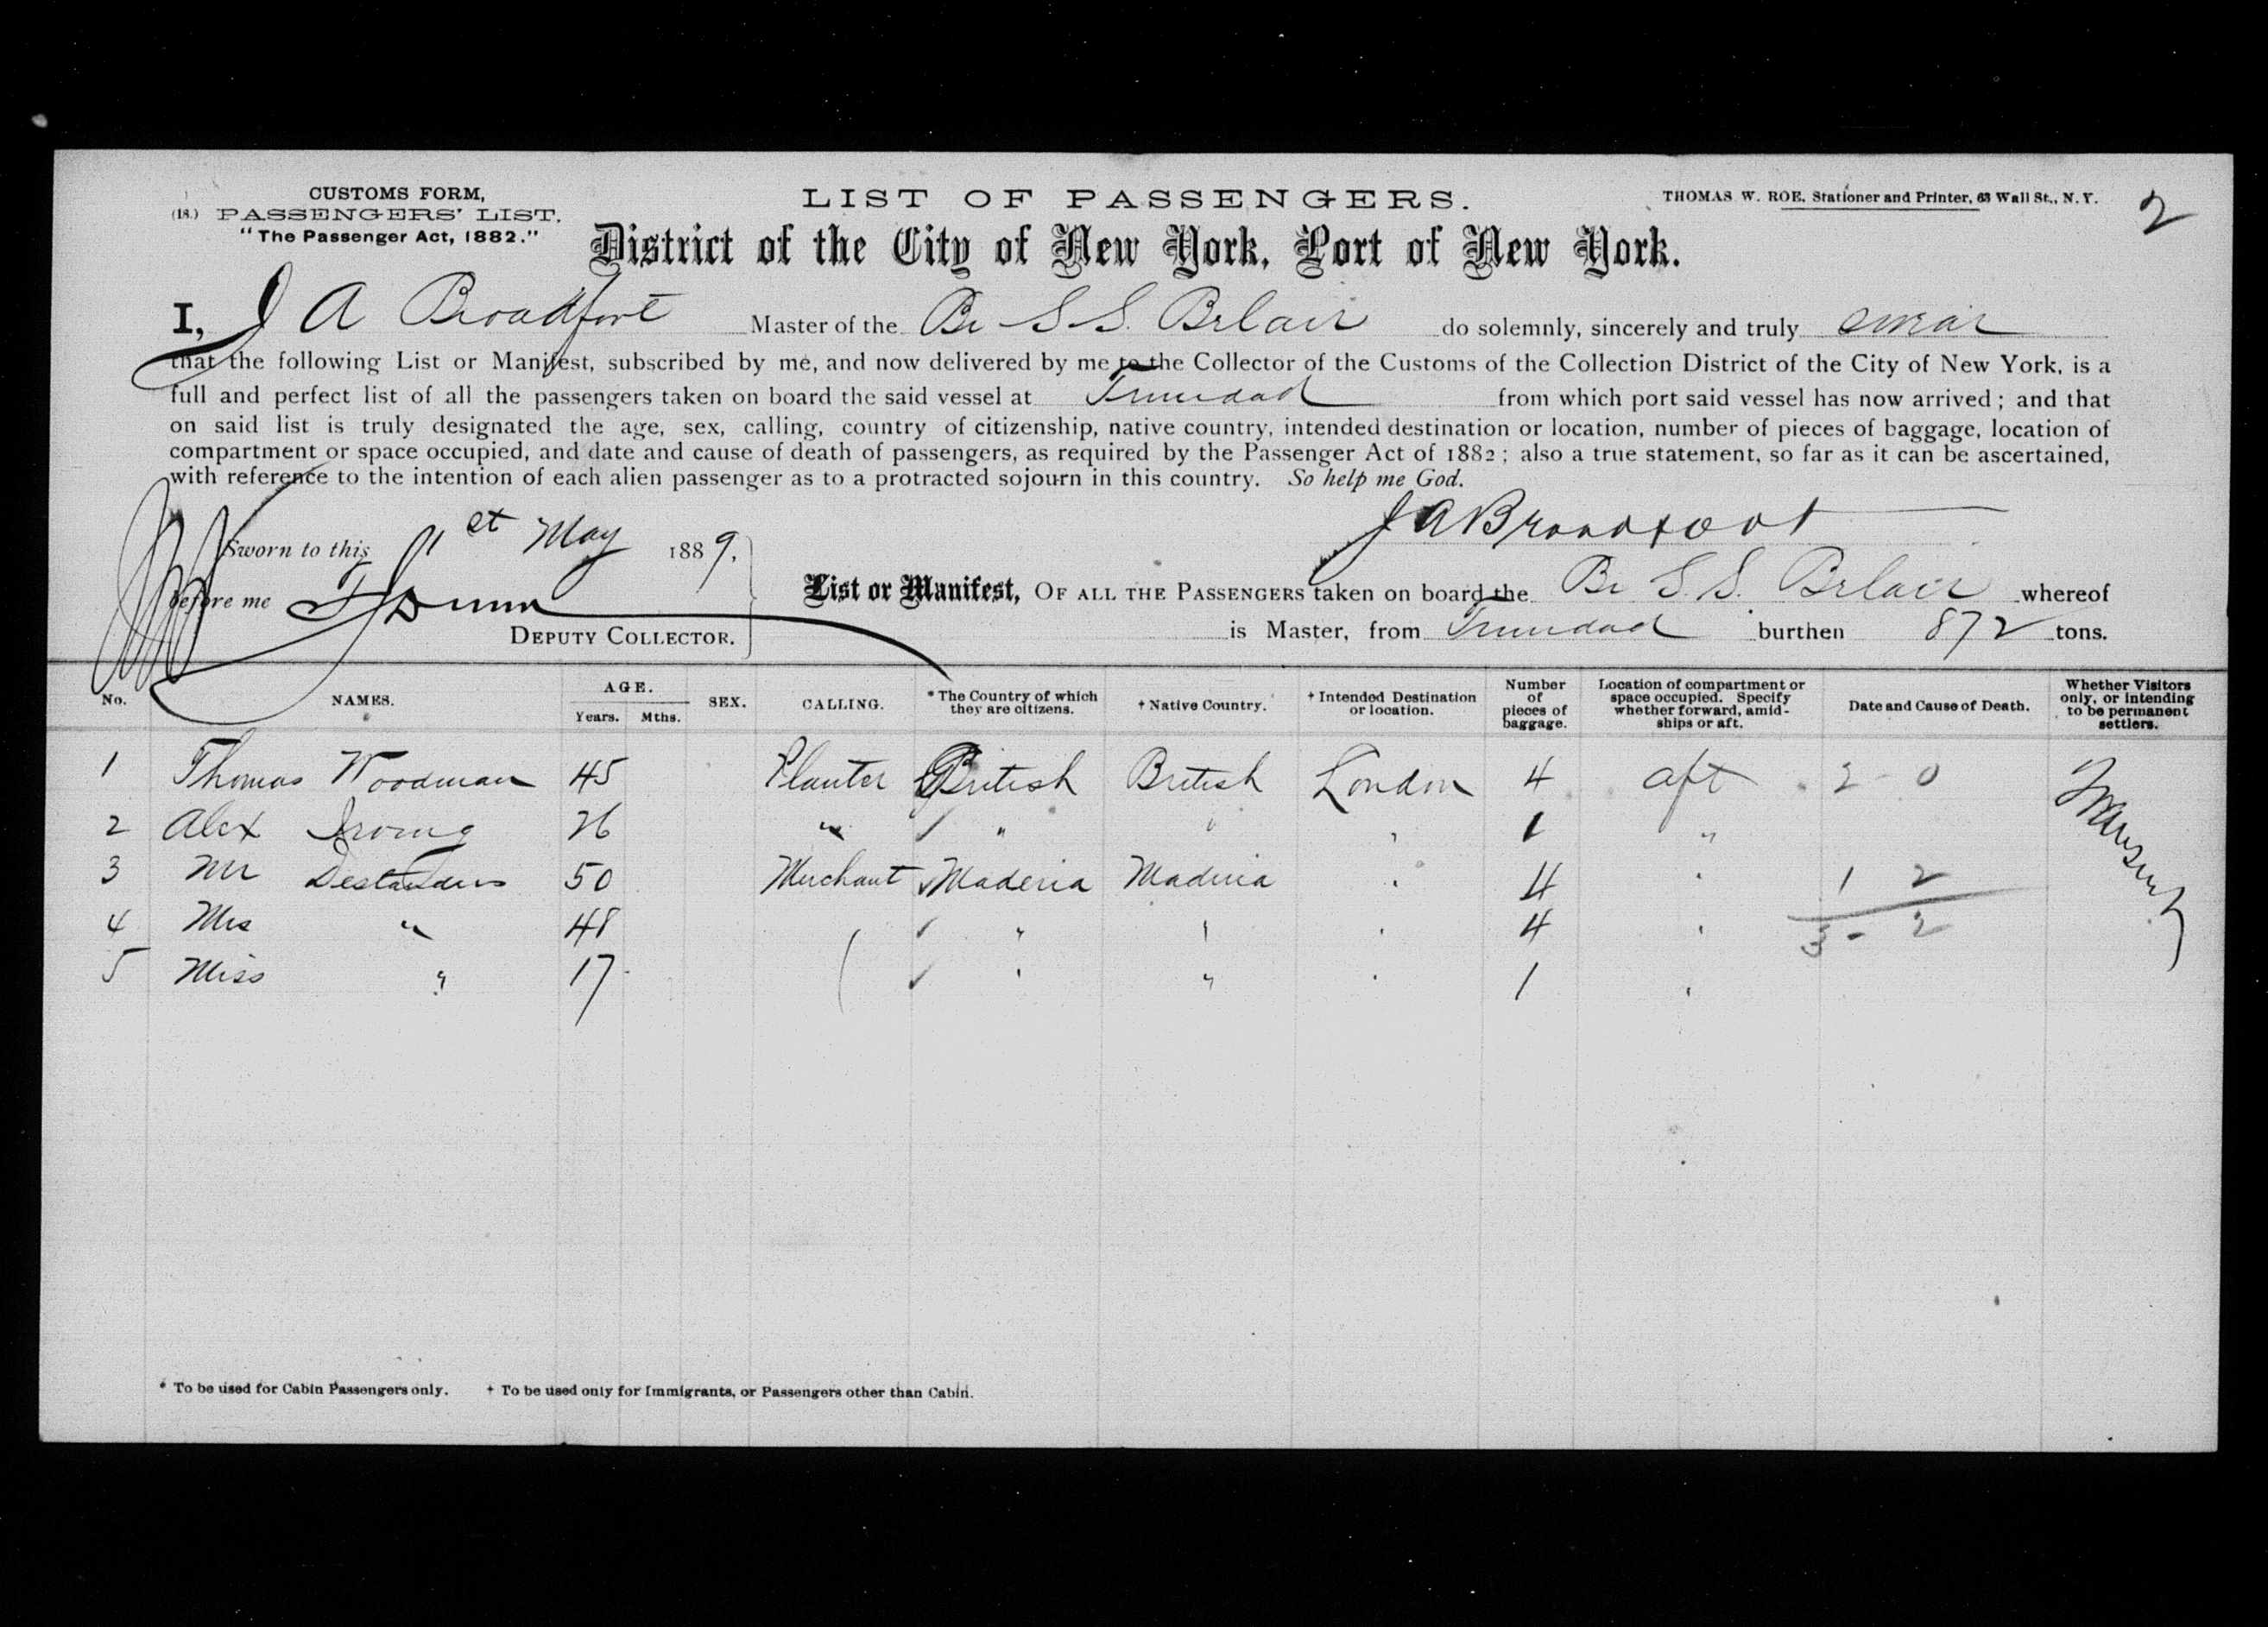 CUSTOMS FORM,
(18.) PASSENGERS' LIST.
"The Passenger Act, 1882."
LIST OF PASSENGERS.
THOMAS W. ROE, Stationer and Printer, 63 Wall St., N. Y.
2
District of the City of New York, Port of New York.
I, J A Broadfort Master of the Br S S. Belair do solemnly, sincerely and truly swear
that the following List or Manifest, subscribed by me, and now delivered by me to the Collector of the Customs of the Collection District of the City of New York, is a
full and perfect list of all the passengers taken on board the said vessel at Trinidad from which port said vessel has now arrived; and that
on said list is truly designated the age, sex, calling, country of citizenship, native country, intended destination or location, number of pieces of baggage, location of
compartment or space occupied, and date and cause of death of passengers, as required by the Passenger Act of 1882; also a true statement, so far as it can be ascertained,
with reference to the intention of each alien passenger as to a protracted sojourn in this country. So help me God.
J A Broadfoot
Sworn to this 1st May 1889.
before me Dunn
DEPUTY COLLECTOR.
List or Manifest, OF ALL THE PASSENGERS taken on board the Br S. S. Belair whereof
is Master, from Trinidad burthen 872 tons.
No. NAMES. AGE. Years. Mths. SEX. CALLING. * The Country of which they are citizens. † Native Country. † Intended Destination or location. Number of pieces of baggage. Location of compartment or space occupied. Specify whether forward, amidships or aft. Date and Cause of Death. Whether Visitors only, or intending to be permanent settlers.
1 Thomas Woodman 45 Planter British British London 4 aft 2 - 0
2 Alex Irving 26 " " " " 1 "
3 Mr 50 Merchant Maderia Maderia " 4 " 1 2
4 Mrs " 48 " " " 4 " 3 - 2
5 Miss " 17 " " " 1 "
* To be used for Cabin Passengers only. † To be used only for Immigrants, or Passengers other than Cabin.